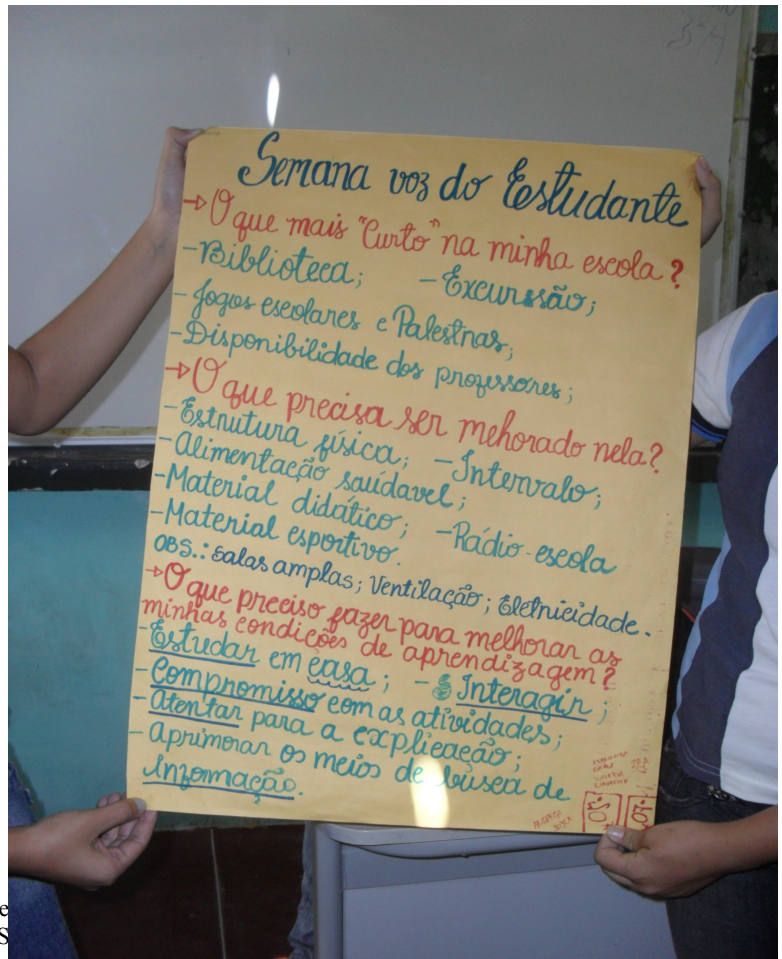 Semana voz do Estudante
→ O que mais "Curto" na minha escola?
- Biblioteca; - Excurssão;
- Jogos escolares e Palestras;
- Disponibilidade dos professores;
→ O que precisa ser mehorado nela?
- Estrutura física; - Intervalo;
- Alimentação saúdavel;
- Material didático; - Rádio-escola
- Material esportivo.
OBS.: Salas amplas; Ventilação; Eletricidade.
→ O que preciso fazer para melhorar as
minhas condições de aprendizagem?
- Estudar em casa; - Interagir;
- Compromisso com as atividades;
- Atentar para a explicação;
- Aprimorar os meios de busca de
Informação.
e
S